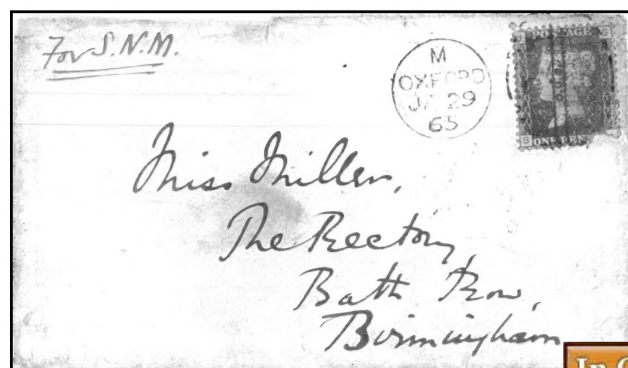 For S.N.M.
M
OXFORD
JA 29
65
POSTAGE
ONE PEN
Miss Miller,
The Rectory,
Bath Row,
Birmingham
In